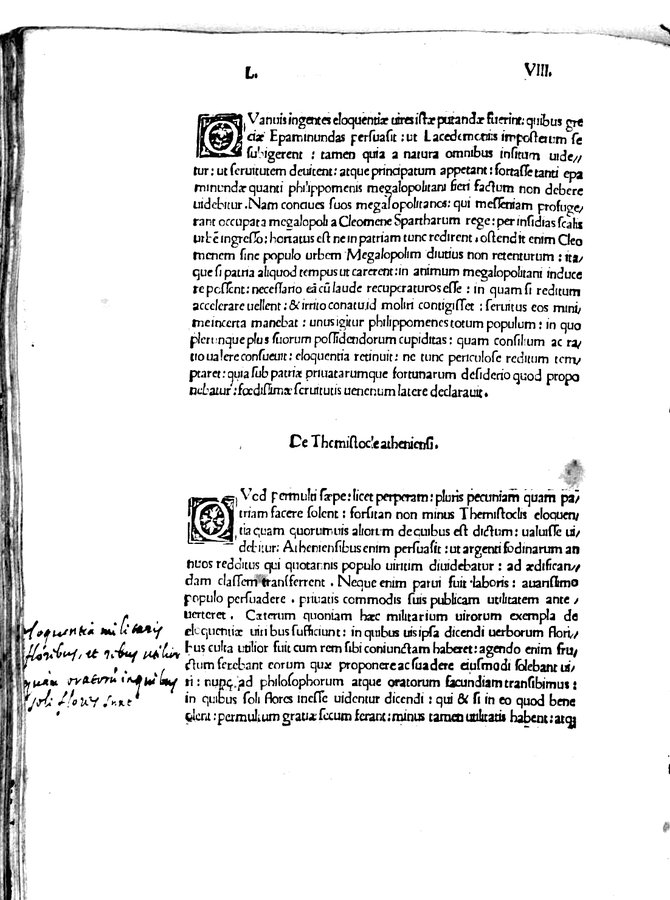 L. VIII.
QVanuis ingentes eloquentiæ uires istæ putandæ fuerint: quibus gre
ciæ Epaminundas persuasit: ut Lacedemoniis imposterum se
subigerent: tamen quia a natura omnibus insitum uide//
tur: ut seruitutem deuitent: atque principatum appetant: fortasse tanti epa
minundæ quanti philippomenis megalopolitani fieri factum non debere
uidebitur. Nam conciues suos megalopolitanos: qui messeniam profuge/
rant occupata megalopoli a Cleomene Spartharum rege: per insidias scalis
urbē ingresso: hortatus est ne in patriam tunc redirent, ostendit enim Cleo
menem sine populo urbem Megalopolim diutius non retenturum: ita/
que si patria aliquod tempus ut carerent: in animum megalopolitani induce
re possent: necessario eā cū laude recuperaturos esse: in quam si reditum
accelerare uellent: & irrito conatu id moliri contigisset: seruitus eos mini/
me incerta manebat: unus igitur philippomenes totum populum: in quo
plerunque plus suorum possidendorum cupiditas: quam consilium ac ra/
tio ualere consueuit: eloquentia retinuit: ne tunc periculose reditum tem/
ptaret: quia sub patriæ priuatarumque fortunarum desiderio quod propo
nebatur: fœdissimæ seruitutis uenenum latere declarauit.
De Themistocle atheniensi.
QVod permulti sæpe: licet perperam: pluris pecuniam quam pa/
triam facere solent: forsitan non minus Themistoclis eloquen/
tia quam quorumuis aliorum de quibus est dictum: ualuisse ui/
debitur: Atheniensibus enim persuasit: ut argenti fodinarum an
nuos redditus qui quotannis populo uiritim diuidebatur: ad ædifican/
dam classem transferrent. Neque enim parui fuit laboris: auarissimo
populo persuadere. priuatis commodis suis publicam utilitatem ante/
uerteret. Cæterum quoniam hæc militarium uirorum exempla de
eloquentiæ uiribus sufficiunt: in quibus uis ipsa dicendi uerborum flori/
bus culta utilior fuit cum rem sibi coniunctam haberet: agendo enim fru/
ctum ferebant eorum quæ proponere ac suadere eiusmodi solebant ui/
ri: nunc ad philosophorum atque oratorum facundiam transibimus:
in quibus soli flores inesse uidentur dicendi: qui & si in eo quod bene
olent: permultum gratiæ secum ferant: minus tamen utilitatis habent: atq
eloquentia militaris
floribus, et rebus utilior
quam oratorū in quibus
soli flores sunt